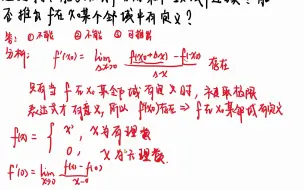 否推出 f 在 x₀ 某个邻域中有定义?
① 不能 ② 不能 ③ 可推出
分析: f'(x₀) = lim_{Δx→0} (f(x₀+Δx) - f(x₀))/Δx 存在
只有当 f 在 x₀ 某邻域有定义时,
表达式才有意义, 所以 f'(x₀)存在 ⇒ f 在 x₀ 某邻域有定义
f(x) = { x², x为有理数
0, x为无理数.
f'(0) = lim_{x→0} (f(x) - f(0))/(x-0)